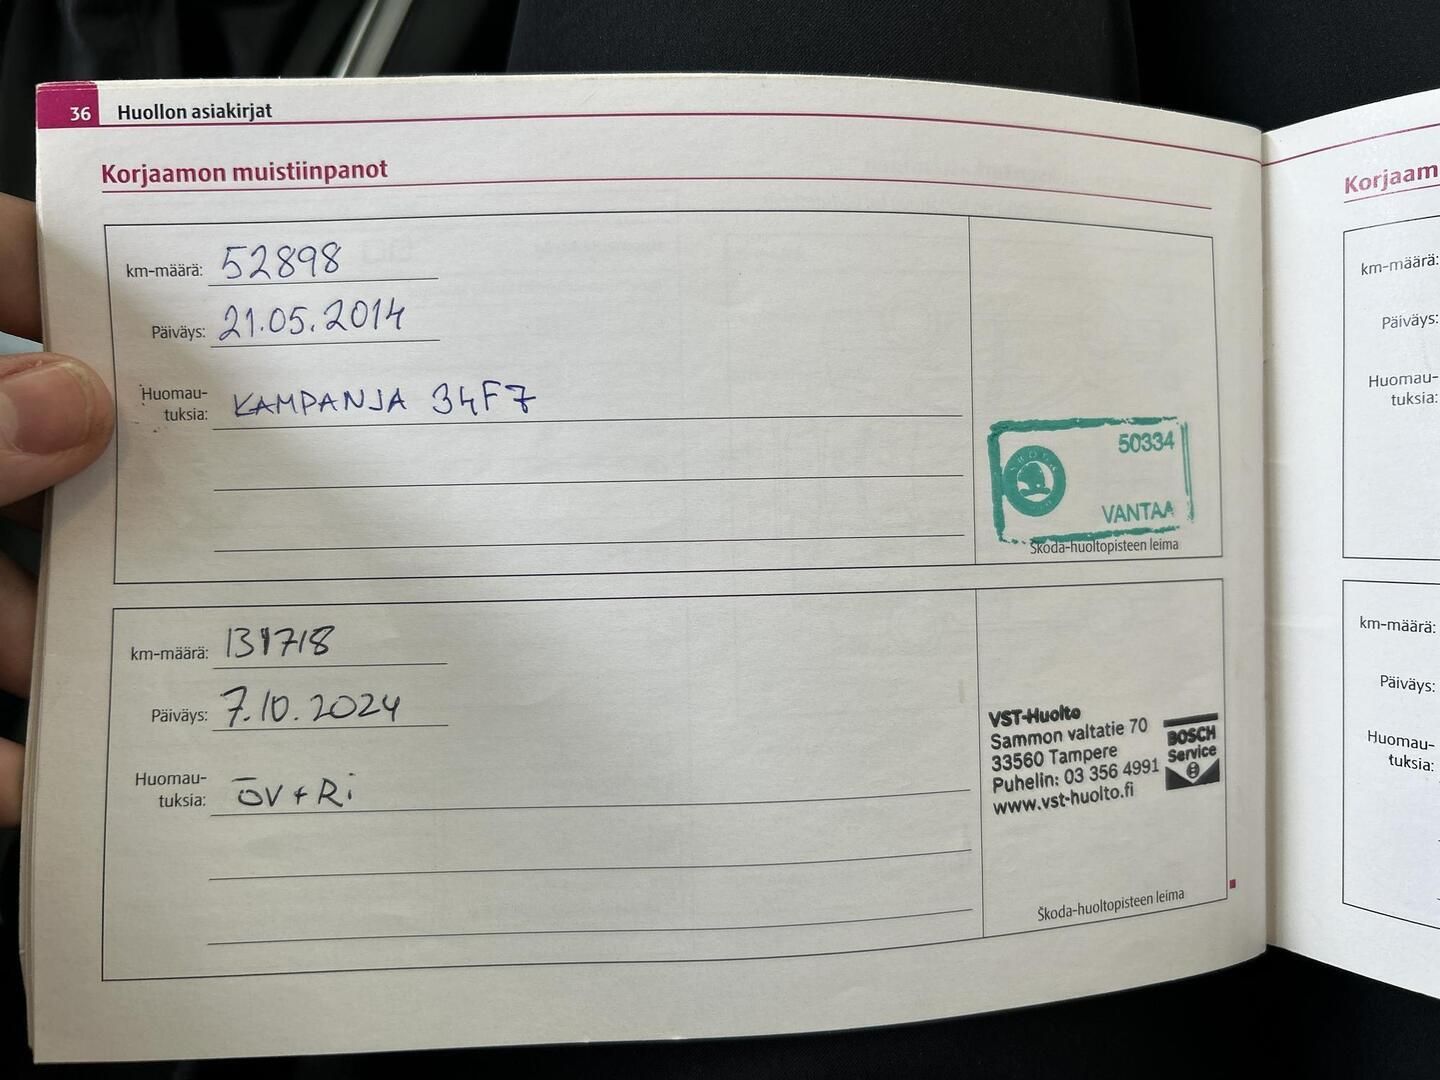 36 Huollon asiakirjat
Korjaamon muistiinpanot
km-määrä: 52898
Päiväys: 21.05.2014
Huomau-
tuksia: KAMPANJA 34F7
50334
VANTAA
Škoda-huoltopisteen leima
km-määrä: 131718
Päiväys: 7.10.2024
Huomau-
tuksia: ÖV + Ri
VST-Huolto
Sammon valtatie 70
33560 Tampere
Puhelin: 03 356 4991
www.vst-huolto.fi
BOSCH
Service
Škoda-huoltopisteen leima
Korjaam
km-määrä:
Päiväys:
Huomau-
tuksia:
km-määrä:
Päiväys:
Huomau-
tuksia: